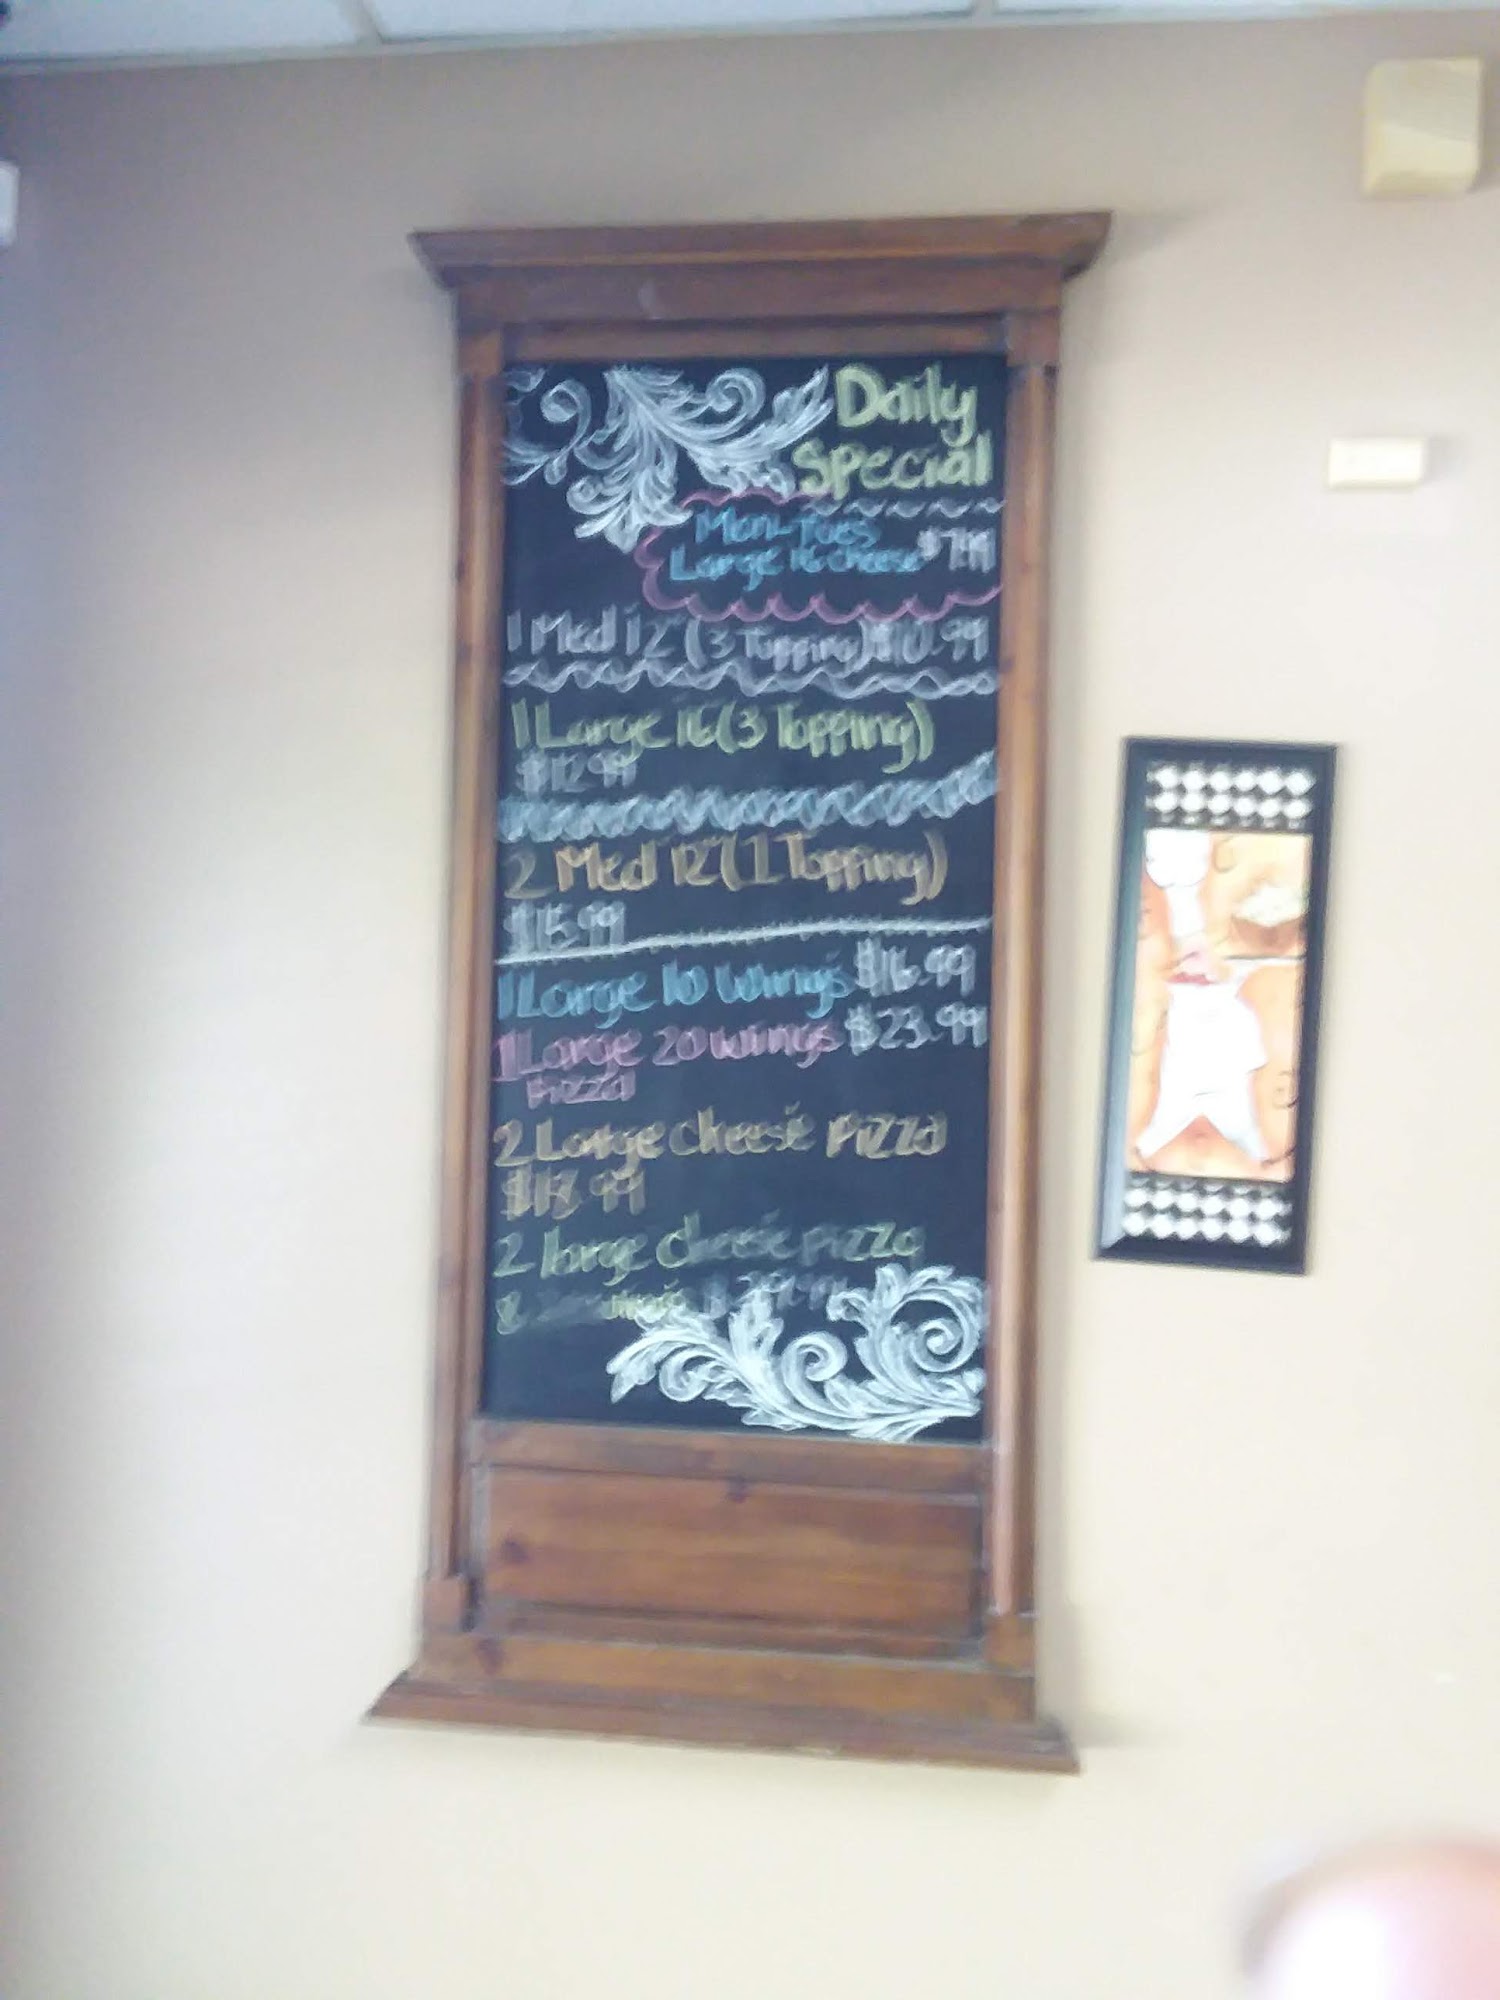 Daily
Special
Mon-Tues
Large 16 cheese $7.99
1 Med 12" (3 Topping) $10.99
1 Large 16 (3 Topping)
$12.99
2 Med 12" (1 Topping)
$15.99
1 Large 10 wings $16.99
1 Large 20 wings $23.99
Pizza
2 Large cheese Pizza
2 large cheese pizza